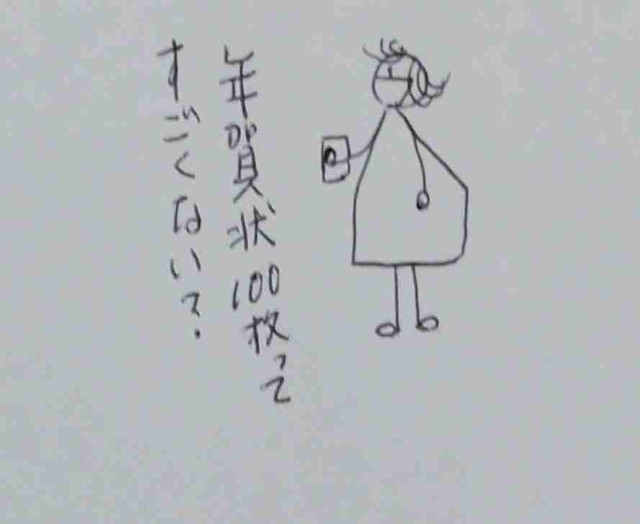 年賀状100枚って
すごくない？